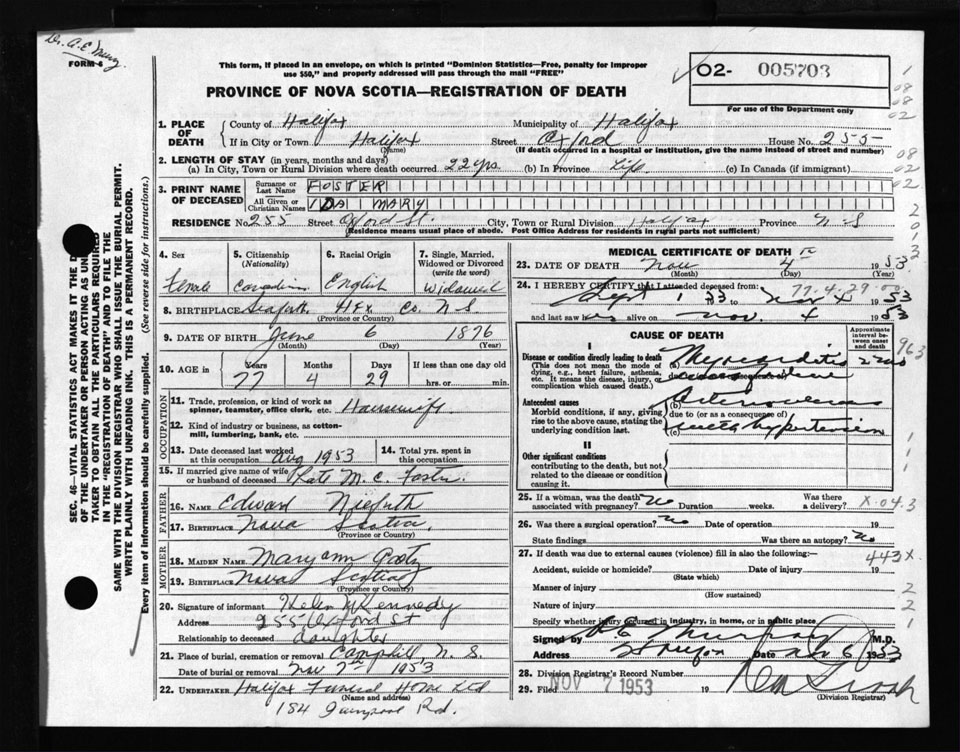 Dr. A.E. Murray
FORM 6
This form, if placed in an envelope, on which is printed "Dominion Statistics—Free, penalty for improper
use $50," and properly addressed will pass through the mail "FREE"
PROVINCE OF NOVA SCOTIA—REGISTRATION OF DEATH
O2- 005703
For use of the Department only
1. PLACE OF DEATH
County of Halifax Municipality of Halifax
If in City or Town Halifax Street Oxford House No. 255
(Name) (If death occurred in a hospital or institution, give the name instead of street and number)
2. LENGTH OF STAY (in years, months and days)
(a) In City, Town or Rural Division where death occurred 22 yrs. (b) In Province Life (c) In Canada (if immigrant)
3. PRINT NAME OF DECEASED
Surname or Last Name FOSTER
All Given or Christian Names IDA MARY
RESIDENCE No. 255 Street Oxford St. City, Town or Rural Division Halifax Province N S
(Residence means usual place of abode. Post Office Address for residents in rural parts not sufficient)
4. Sex Female
5. Citizenship (Nationality) Canadian
6. Racial Origin English
7. Single, Married, Widowed or Divorced (write the word) Widowed
8. BIRTHPLACE Seaforth Hfx Co. N S
(Province or Country)
9. DATE OF BIRTH June 6 1876
(Month) (Day) (Year)
10. AGE in Years Months Days If less than one day
77 4 29 hrs. or min.
OCCUPATION
11. Trade, profession, or kind of work as spinner, teamster, office clerk, etc. Housewife
12. Kind of industry or business, as cotton-mill, lumbering, bank, etc.
13. Date deceased last worked at this occupation Aug 1953
14. Total yrs. spent in this occupation
15. If married give name of wife or husband of deceased Late M. C. Foster.
FATHER
16. NAME Edward Nieforth
17. BIRTHPLACE Nova Scotia.
(Province or Country)
MOTHER
18. MAIDEN NAME Mary ann
19. BIRTHPLACE Nova Scotia
(Province or Country)
20. Signature of informant Helen Kennedy
Address 255 Oxford St
Relationship to deceased daughter
21. Place of burial, cremation or removal Camphill, N. S.
Date of burial or removal Nov 7th 1953
22. UNDERTAKER Halifax Funeral Home Ltd
(Name and address)
184 Rd.
MEDICAL CERTIFICATE OF DEATH
23. DATE OF DEATH Nov 4th 1953
(Month) (Day) (Year)
24. I HEREBY CERTIFY that I attended deceased from: 77.4.29.00
Sept 1 53 to Nov 4 1953
and last saw alive on Nov. 4 1953
CAUSE OF DEATH
Approximate interval between onset and death
I
Disease or condition directly leading to death
(This does not mean the mode of dying, e.g., heart failure, asthenia, etc. It means the disease, injury, or complication which caused death.)
Myocarditis
Antecedent causes
Morbid conditions, if any, giving rise to the above cause, stating the underlying condition last.
(b)
due to (or as a consequence of)
(c) with hypertension
II
Other significant conditions
contributing to the death, but not related to the disease or condition causing it.
25. If a woman, was the death associated with pregnancy? No Duration weeks. Was there a delivery? X.04.3
26. Was there a surgical operation? No Date of operation 19
State findings Was there an autopsy? No
27. If death was due to external causes (violence) fill in also the following:— 443X.
Accident, suicide or homicide? Date of injury 19
(State which)
Manner of injury
(How sustained)
Nature of injury
Specify whether injury occurred in industry, in home, or in public place
Signed by A E Murray M.D.
Address Halifax Date Nov 6 1953
28. Division Registrar's Record Number
29. Filed NOV 7 1953 19
(Division Registrar)
SEC. 46—VITAL STATISTICS ACT MAKES IT THE
OF THE UNDERTAKER OR PERSON ACTING AS
TAKER TO OBTAIN ALL THE PARTICULARS REQUIRED
IN THE "REGISTRATION OF DEATH" AND TO FILE THE
SAME WITH THE DIVISION REGISTRAR WHO SHALL ISSUE THE BURIAL PERMIT.
WRITE PLAINLY WITH UNFADING INK. THIS IS A PERMANENT RECORD.
Every item of information should be carefully supplied. (See reverse side for instructions.)
1
08
08
02
08
02
02
2
0
1
3
2
963
1
1
1
2
2
1